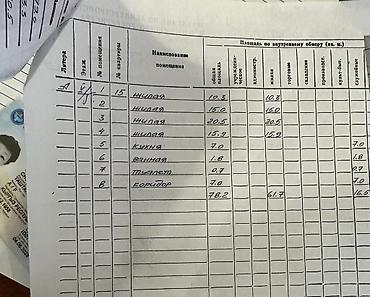 Площадь по внутреннему обмеру (кв. м.)
Литера Этаж № помещения № квартиры Наименование помещения общая площадь учрежден-ческое администр. жилая торговая складская производст. культ-быт. служебные
А 1 15 жилая 10.3 10.3
2 жилая 15.0 15.0
3 жилая 20.5 20.5
4 жилая 15.9 15.9
5 кухня 7.0 7.0
6 ванная 1.8 1.8
7 туалет 0.7 0.7
8 коридор 7.0 7.0
78.2 61.7 16.5